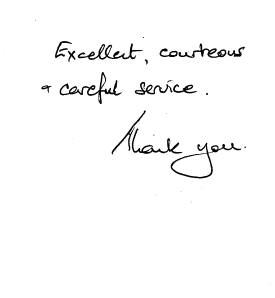 Excellent, courteous
& careful service.
Thank you.